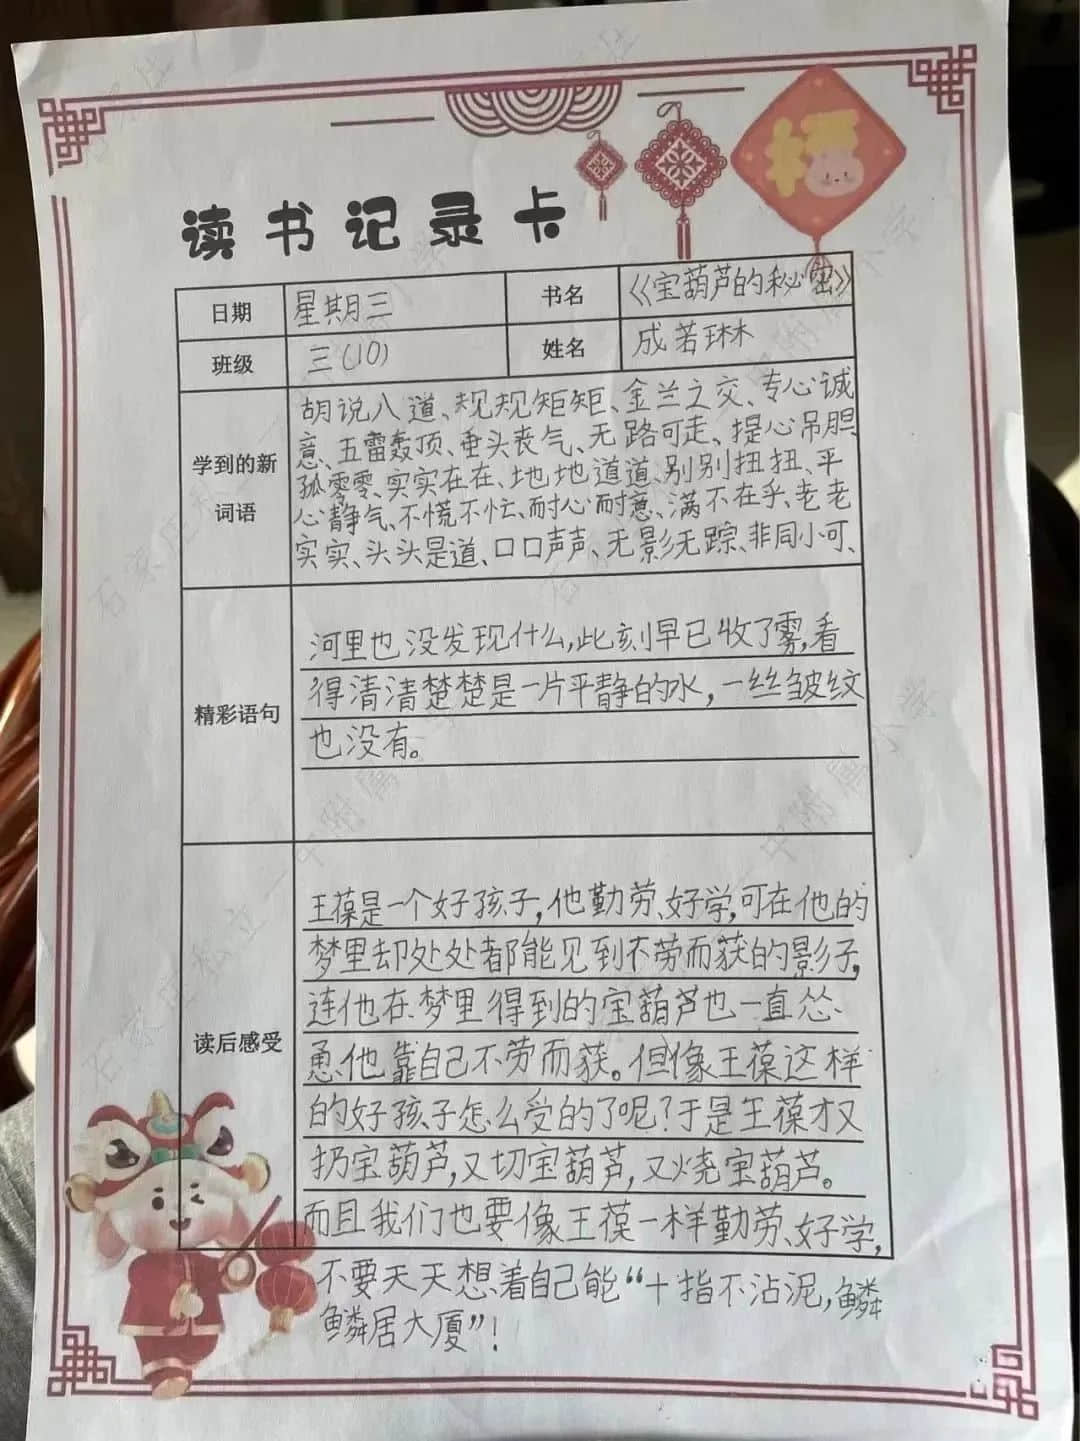 福
读书记录卡
日期 星期三 书名 《宝葫芦的秘密》
班级 三(10) 姓名 成若琳
学到的新词语
胡说八道、规规矩矩、金兰之交、专心诚
意、五雷轰顶、垂头丧气、无路可走、提心吊胆、
孤零零、实实在在、地地道道、别别扭扭、平
心静气、不慌不忙、耐心耐意、满不在乎、老老
实实、头头是道、口口声声、无影无踪、非同小可、
精彩语句
河里也没发现什么,此刻早已收了雾,看
得清清楚楚是一片平静的水,一丝皱纹
也没有。
读后感受
王葆是一个好孩子,他勤劳、好学,可在他的
梦里却处处都能见到不劳而获的影子,
连他在梦里得到的宝葫芦也一直怂
恿他靠自己不劳而获。但像王葆这样
的好孩子怎么受的了呢?于是王葆才又
扔宝葫芦,又切宝葫芦,又烧宝葫芦。
而且我们也要像王葆一样勤劳、好学,
不要天天想着自己能“十指不沾泥,鳞
鳞居大厦”!